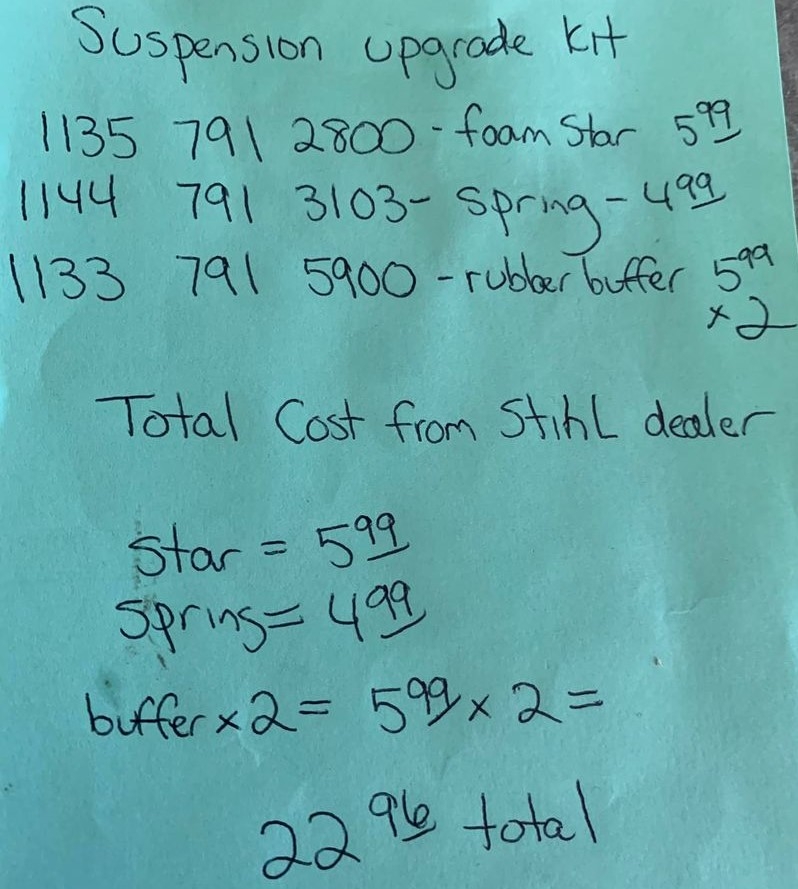 Suspension upgrade kit
1135 791 2800 - foam Star 5 99
1144 791 3103 - Spring - 4 99
1133 791 5900 - rubber buffer 5 99
x 2
Total Cost from StihL dealer
Star = 5 99
Spring = 4 99
buffer x 2 = 5 99 x 2 =
22 96 total